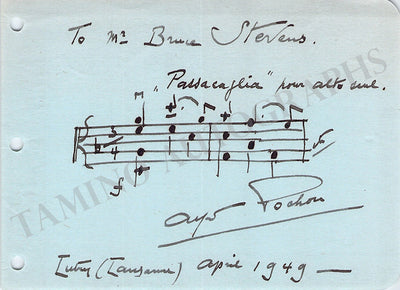 To Mr Bruce Stevens.
„Passacaglia" pour alto seul.
3
4
f
Pochon
Lutry (Lausanne) April 1949 —
TAMINO AUTOGRAPHS